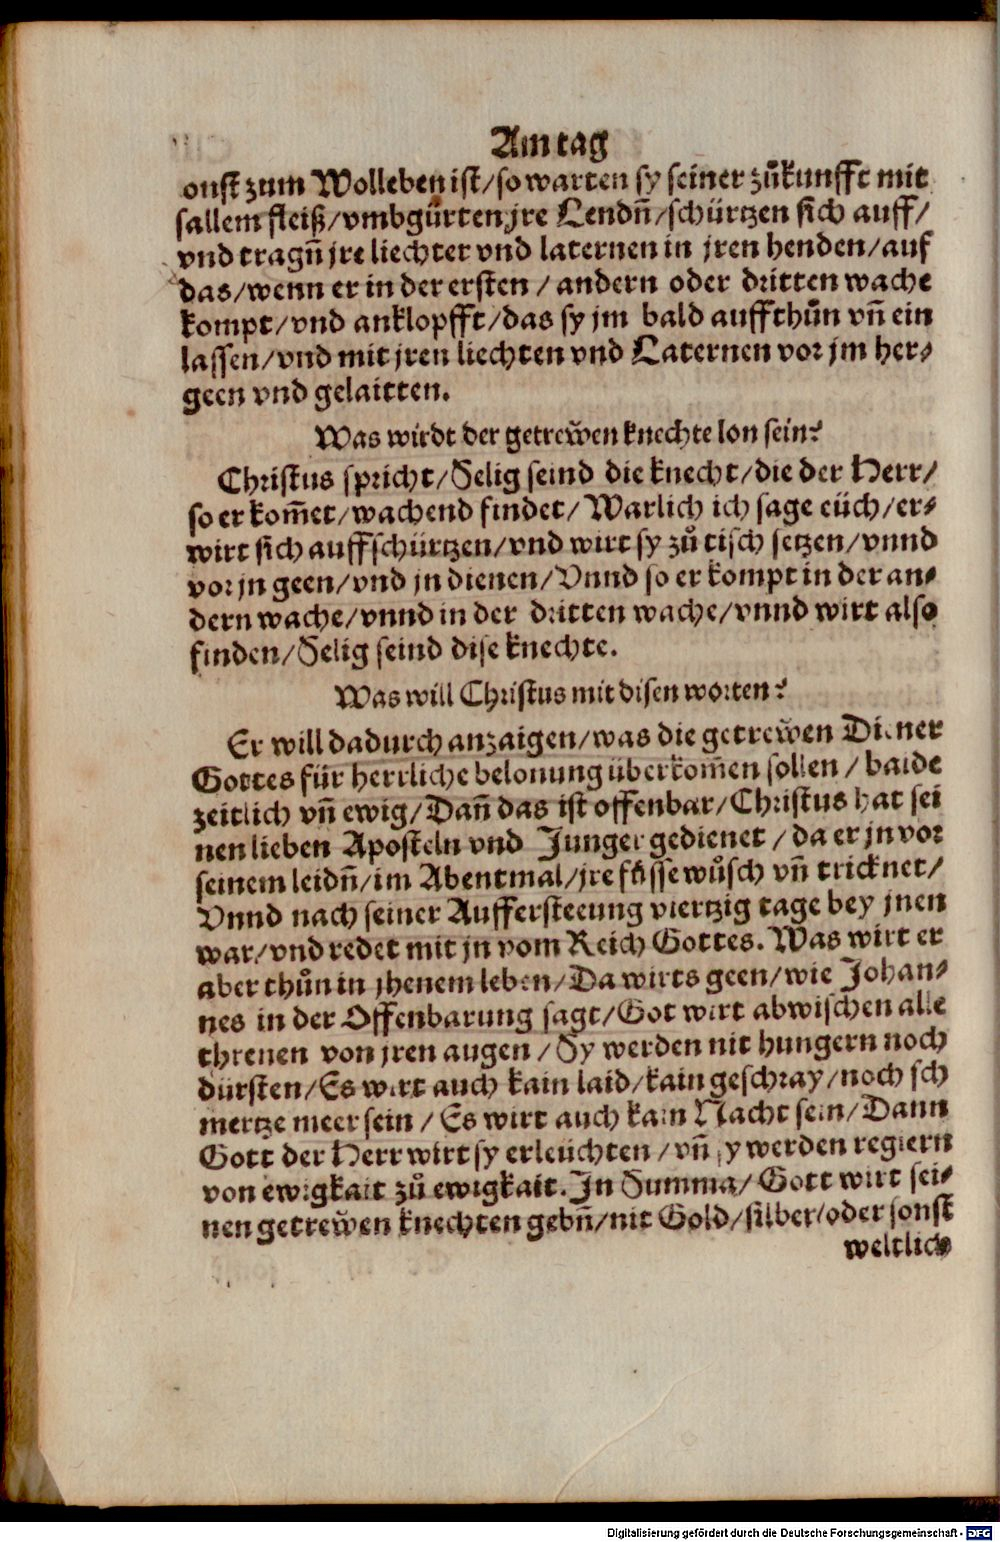 Am tag
onst zum Wolleben ist/so warten sy seiner zůkunfft mit
sallem fleiß/vmbgürten jre Lendn̄/schürtzen sich auff/
vnd tragn̄ jre liechter vnd laternen in jren henden/auf
das/wenn er in der ersten / andern oder dritten wache
kompt/vnd anklopfft/das sy jm bald auffthůn vn̄ ein
lassen/vnd mit jren liechten vnd Laternen vor jm her⸗
geen vnd gelaitten.
Was wirdt der getrewen knechte lon sein?
Christus spricht/Selig seind die knecht/die der Herr/
so er kom̄et/wachend findet/ Warlich ich sage eüch/er⸗
wirt sich auffschürtzen/vnd wirt sy zů tisch setzen/vnnd
vor jn geen/vnd jn dienen/Vnnd so er kompt in der an⸗
dern wache/vnnd in der dritten wache/vnnd wirt also
finden/Selig seind dise knechte.
Was will Christus mit disen worten?
Er will dadurch anzaigen/was die getrewen Diener
Gottes für herrliche belonung überkom̄en sollen / baide
zeitlich vn̄ ewig/Dan̄ das ist offenbar/Christus hat sei
nen lieben Aposteln vnd Junger gedienet / da er jn vor
seinem leidn̄/im Abentmal/jre füsse wůsch vn̄ tricknet/
Vnnd nach seiner Auffersteeung viertzig tage bey jnen
war/vnd redet mit jn vom Reich Gottes. Was wirt er
aber thůn in jhenem leben/Da wirts geen/wie Johan⸗
nes in der Offenbarung sagt/Got wirt abwischen alle
threnen von jren augen / Sy werden nit hungern noch
dürsten/Es wirt auch kain laid/kain geschray/noch sch
mertze meer sein / Es wirt auch kain Nacht sein/Dann
Gott der Herr wirt sy erleüchten / vn̄ sy werden regiern
von ewigkait zů ewigkait. In Summa/ Gott wirt sei⸗
nen getrewen knechten gebn̄/nit Gold/silber/oder sonst
weltlich
Digitalisierung gefördert durch die Deutsche Forschungsgemeinschaft - DFG